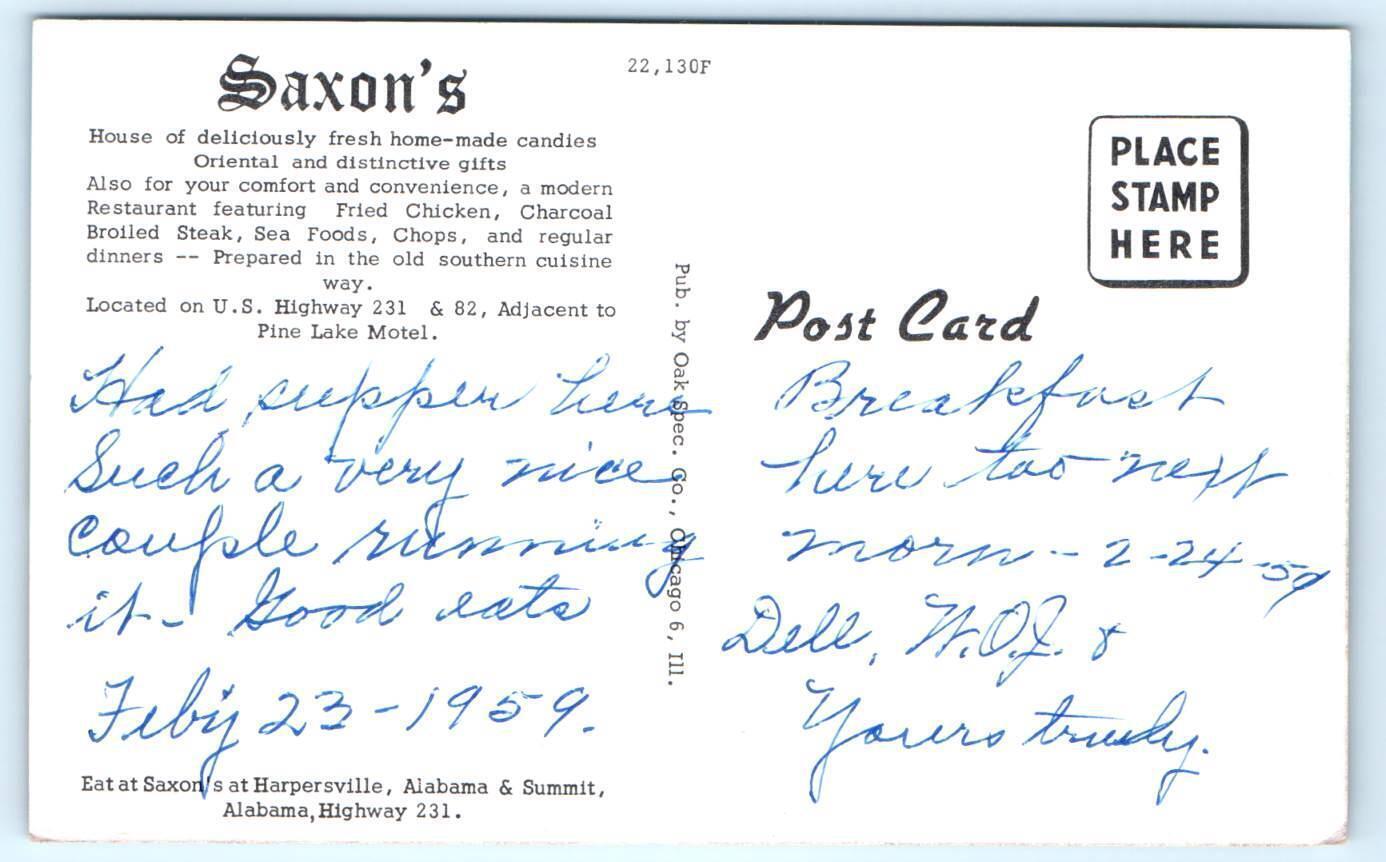 Saxon's
House of deliciously fresh home-made candies
Oriental and distinctive gifts
Also for your comfort and convenience, a modern
Restaurant featuring Fried Chicken, Charcoal
Broiled Steak, Sea Foods, Chops, and regular
dinners -- Prepared in the old southern cuisine
way.
Located on U.S. Highway 231 & 82, Adjacent to
Pine Lake Motel.
Had supper here
Such a very nice
couple running
it - Good eats
Feb'y 23-1959.
Eat at Saxon's at Harpersville, Alabama & Summit,
Alabama, Highway 231.
22,130F
Pub. by Oak Spec. Co., Chicago 6, Ill.
PLACE
STAMP
HERE
Post Card
Breakfast
here too next
morn - 2-24-59
Dell, W.O.J. &
Yours truly.